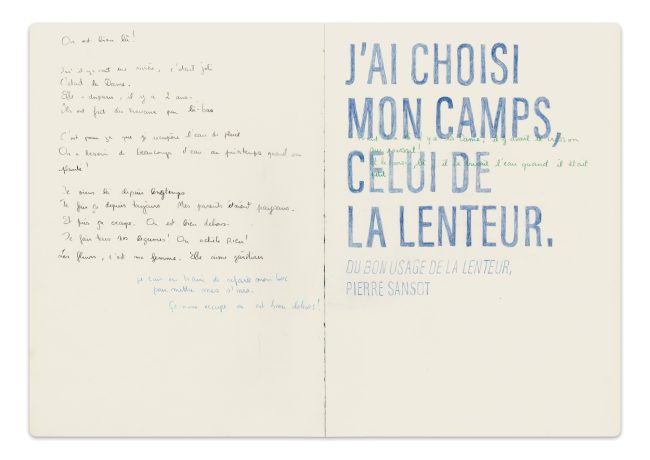 On est bien là !
il y avait une rivière, c'était joli
C'était la Dame.
Elle a disparu, il y a 2 ans.
Ils ont fait des travaux par là-bas
C'est pour ça que je récupère l'eau de pluie
On a besoin de beaucoup d'eau au printemps quand on
plante !
Je viens là depuis longtemps
Je fais ça depuis toujours. Mes parents étaient paysans.
Et puis ça occupe. On est bien dehors.
Je fais tous nos légumes ! On achète rien !
Les fleurs, c'est ma femme. Elle aime jardiner
je suis en train de refaire mon bac
pour mettre mes
Ça nous occupe on est bien dehors !
J'AI CHOISI
MON CAMPS,
il y a la Dame, il y avait le cresson
qui poussait
CELUI DE
il buvait l'eau quand il était
petit
LA LENTEUR.
DU BON USAGE DE LA LENTEUR,
PIERRE SANSOT